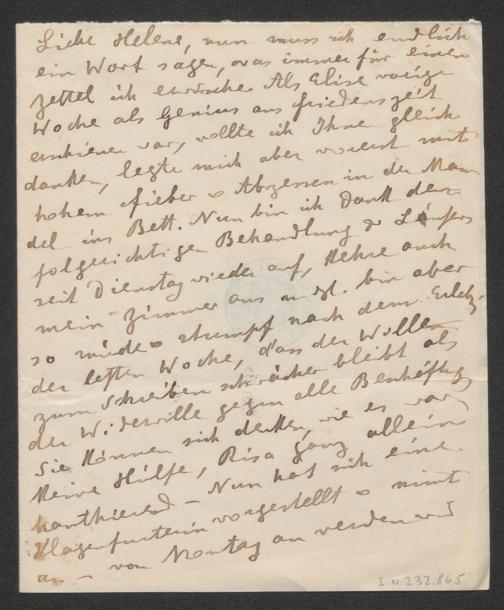 Liebe Helene, nun muss ich endlich
ein Wort sagen, was immer für einen
Zettel ich erwische. Als Elise vorige
Woche als Genius aus Friedenszeit
erschienen war, wollte ich Ihnen gleich
danken, legte mich aber vorerst mit
hohem Fieber u Abszessen in der Man
del ins Bett. Nun bin ich Dank der
folgerichtigen Behandlung
seit Dienstag wieder auf, kehre auch
mein Zimmer aus u. dgl. bin aber
so müde u stumpf nach dem
der letzten Woche, dass der Wille
zum Schreiben schwächer bleibt als
der Widerwille gegen alle
Sie können sich denken, wie es war
keine Hülfe, Risa ganz allein
hanthierend – Nun hat sich eine
Klagenfurterin vorgestellt u nimt
an – von Montag an werden wir
I.N. 232.865